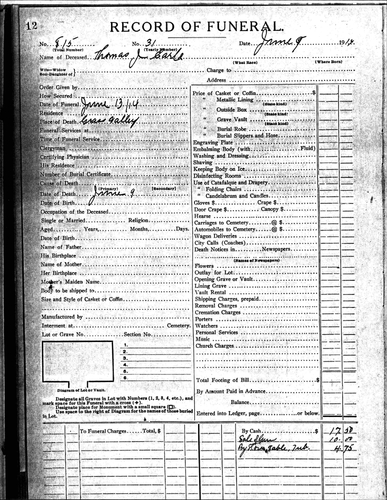 12
RECORD OF FUNERAL.
No. 815 No. 31 Date June 9 1914
(Total Number) (Yearly Number)
Name of Deceased Thomas J.
(What Race) (Where Born)
Charge to
Address
Order Given by
How Secured
Date of Funeral June 13/14
Residence
Place of Death Grass Valley
Funeral Services at
Time of Funeral Service
Clergyman
Certifying Physician
His Residence
Number of Burial Certificate
Cause of Death
(Primary) (Secondary)
Date of Death June 9
Date of Birth
Occupation of the Deceased
Single or Married Religion
Aged Years, Months, Days.
Date of Birth
Name of Father
His Birthplace
Name of Mother
Her Birthplace
Mother's Maiden Name
Body to be shipped to
Size and Style of Casket or Coffin
Manufactured by
Interment at Cemetery.
Lot or Grave No. Section No.
1.
2.
3.
4.
5.
6.
Diagram of Lot or Vault.
Designate all Graves in Lot with Numbers (1, 2, 3, 4, etc.), and
mark space for this Funeral with a cross (+).
Designate place for Monument with a small square (□).
Use space to the right of Diagram for the names of those buried
in Lot.
Price of Casket or Coffin $
" Metallic Lining
" Outside Box
" Grave Vault
" Burial Robe
" Burial Slippers and Hose
Engraving Plate
Embalming Body (with Fluid)
Washing and Dressing
Shaving
Keeping Body on Ice
Disinfecting Rooms
Use of Catafalque and Drapery
" Folding Chairs
" Candelabrum and Candles
Gloves $ Crape $
Door Crape $ Canopy $
Hearse
Carriages to Cemetery @ $
Automobiles to Cemetery @ $
Wagon Deliveries
City Calls (Coaches)
Death Notices in Newspapers.
(Names of Newspapers)
Flowers
Outlay for Lot
Opening Grave or Vault
Lining Grave
Vault Rental
Shipping Charges, prepaid
Removal Charges
Cremation Charges
Porters
Watchers
Personal Services
Music
Church Charges
Total Footing of Bill $
By Amount Paid in Advance
Balance
Entered into Ledger, page or below.
To Funeral Charges Total, $ By Cash $ 17.50
10.00
4.75